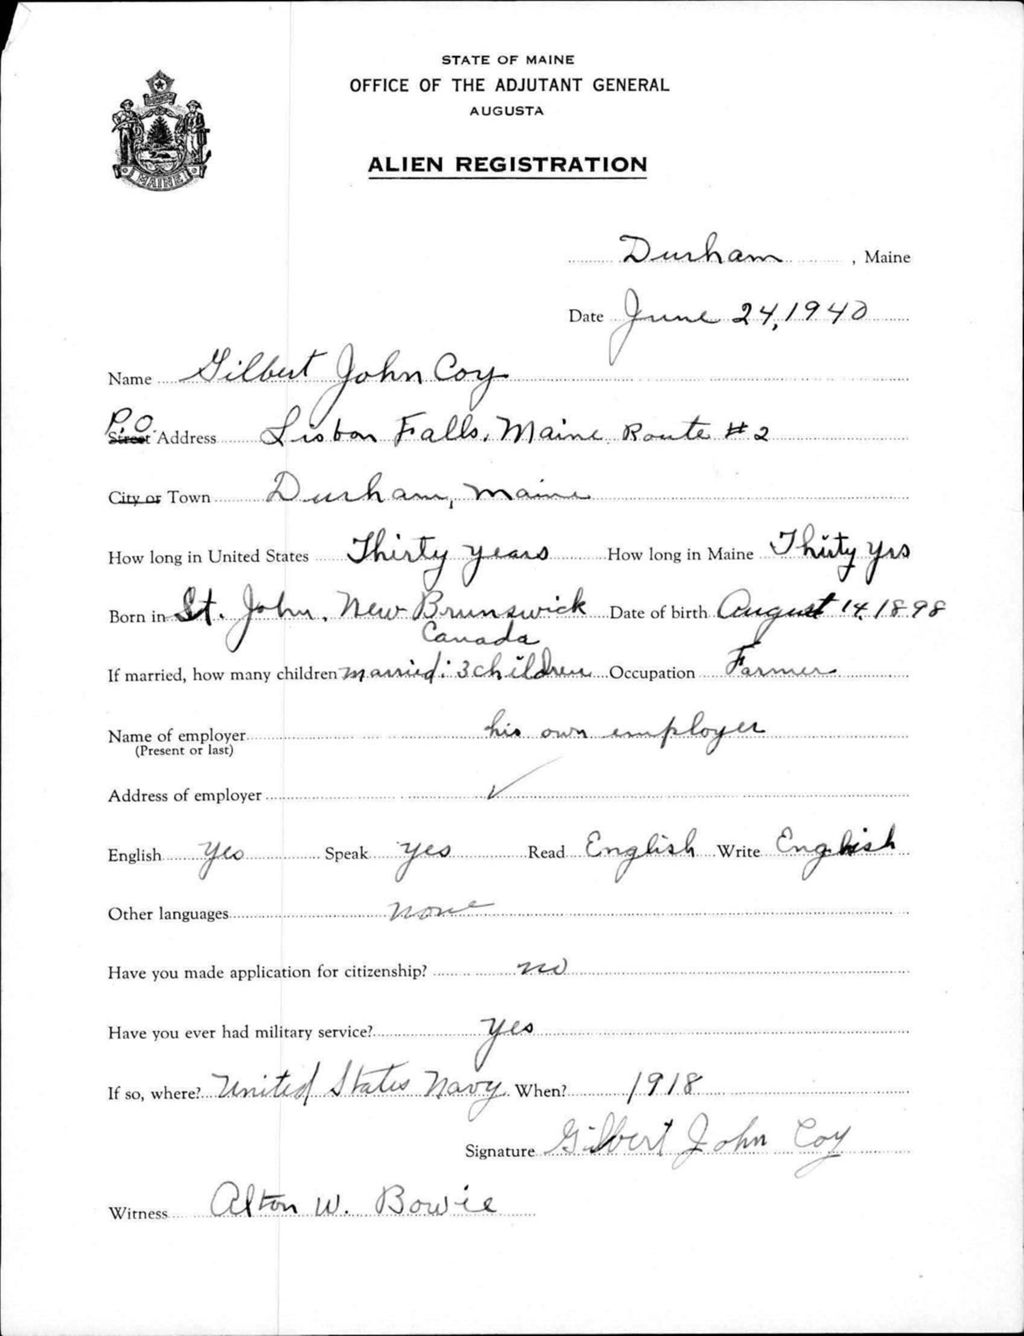 STATE OF MAINE
OFFICE OF THE ADJUTANT GENERAL
AUGUSTA
MAINE
ALIEN REGISTRATION
Durham, Maine
Date June 24, 1940
Name Gilbert John Coy
P.O.
Street Address Lisbon Falls, Maine Route #2
City or Town Durham, Maine
How long in United States Thirty years How long in Maine Thirty yrs
Born in St. John, New Brunswick Date of birth August 14, 1898
Canada
If married, how many children married: 3 children Occupation Farmer
Name of employer his own employer
(Present or last)
Address of employer ✓
English Yes Speak Yes Read English Write English
Other languages none
Have you made application for citizenship? no
Have you ever had military service? Yes
If so, where? United States Navy When? 1918
Signature Gilbert John Coy
Witness Alton W. Bowie